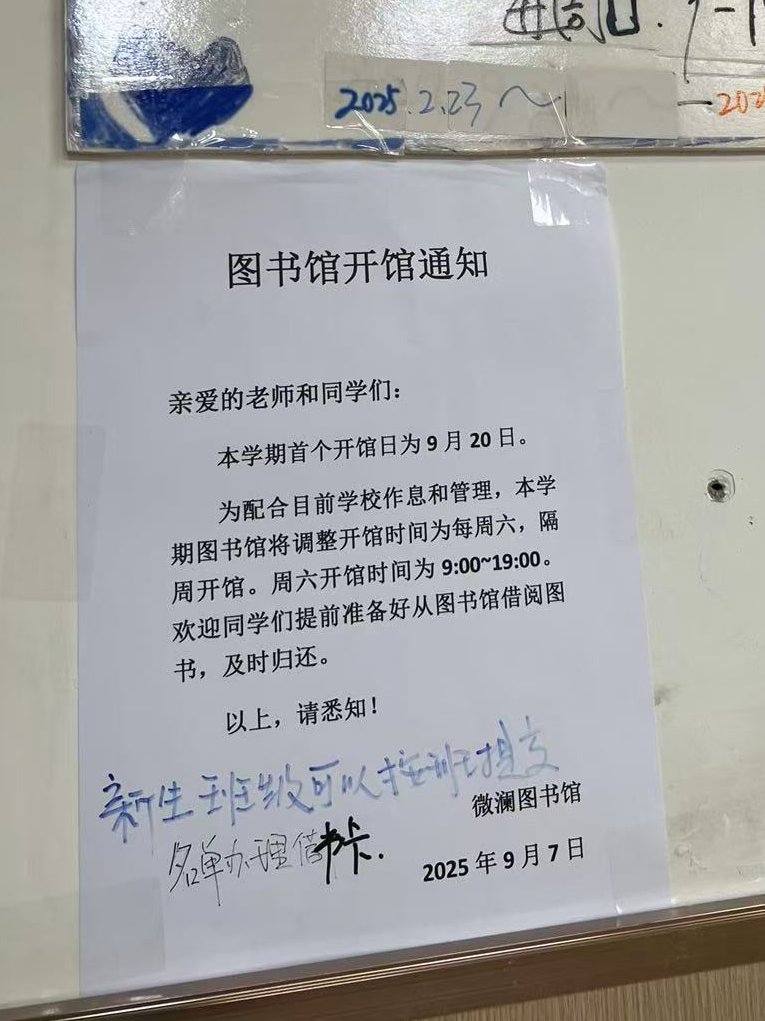 2025.2.23～
图书馆开馆通知
亲爱的老师和同学们：
本学期首个开馆日为 9 月 20 日。
为配合目前学校作息和管理，本学
期图书馆将调整开馆时间为每周六，隔
周开馆。周六开馆时间为 9:00~19:00。
欢迎同学们提前准备好从图书馆借阅图
书，及时归还。
以上，请悉知！
新生班级可以按班提交
微澜图书馆
名单办理借书卡.
2025 年 9 月 7 日